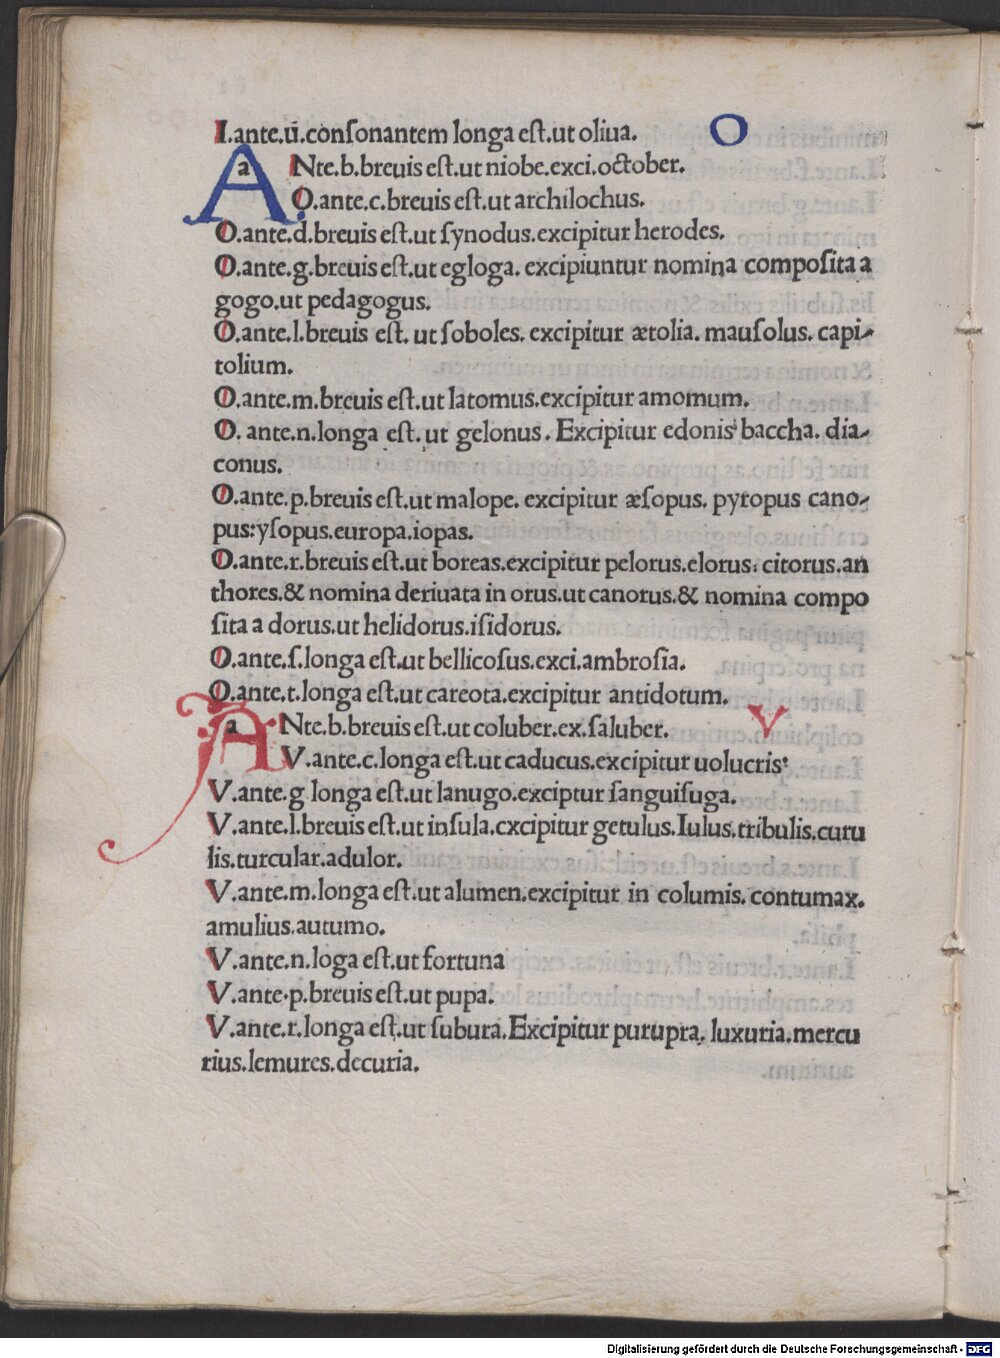 I.ante.ū.conſonantem longa eſt.ut oliua.
O
A
aNte.b.breuis eſt.ut niobe.exci.october.
O.ante.c.breuis eſt.ut archilochus.
O.ante.d.breuis eſt.ut ſynodus.excipitur herodes.
O.ante.g.breuis eſt.ut egloga. excipiuntur nomina compoſita a
gogo.ut pedagogus.
O.ante.l.breuis eſt. ut ſoboles. excipitur ætolia. mauſolus. capi-
tolium.
O.ante.m.breuis eſt.ut latomus.excipitur amomum.
O. ante.n.longa eſt. ut gelonus. Excipitur edonis baccha. dia-
conus.
O.ante.p.breuis eſt.ut malope. excipitur æſopus. pyropus cano-
pus:yſopus.europa.iopas.
O.ante.r.breuis eſt.ut boreas.excipitur pelorus.elorus. citorus.an
thores.& nomina deriuata in orus.ut canorus.& nomina compo
ſita a dorus.ut helidorus.iſidorus.
O.ante.ſ.longa eſt.ut bellicoſus.exci.ambroſia.
O.ante.t.longa eſt.ut careota.excipitur antidotum.
A
aNte.b.breuis eſt.ut coluber.ex.ſaluber.
V
V.ante.c.longa eſt.ut caducus.excipitur uolucris
V.ante.g.longa eſt.ut lanugo.exciptur ſanguiſuga.
V.ante.l.breuis eſt.ut inſula.excipitur getulus.Iulus.tribulis.curu
lis.turcular.adulor.
V.ante.m.longa eſt.ut alumen.excipitur in columis. contumax.
amulius.autumo.
V.ante.n.loga eſt.ut fortuna
V.ante.p.breuis eſt.ut pupa.
V.ante.r.longa eſt.ut ſubura.Excipitur purupra. luxuria.mercu
rius.lemures.decuria.
Digitalisierung gefördert durch die Deutsche Forschungsgemeinschaft - DFG